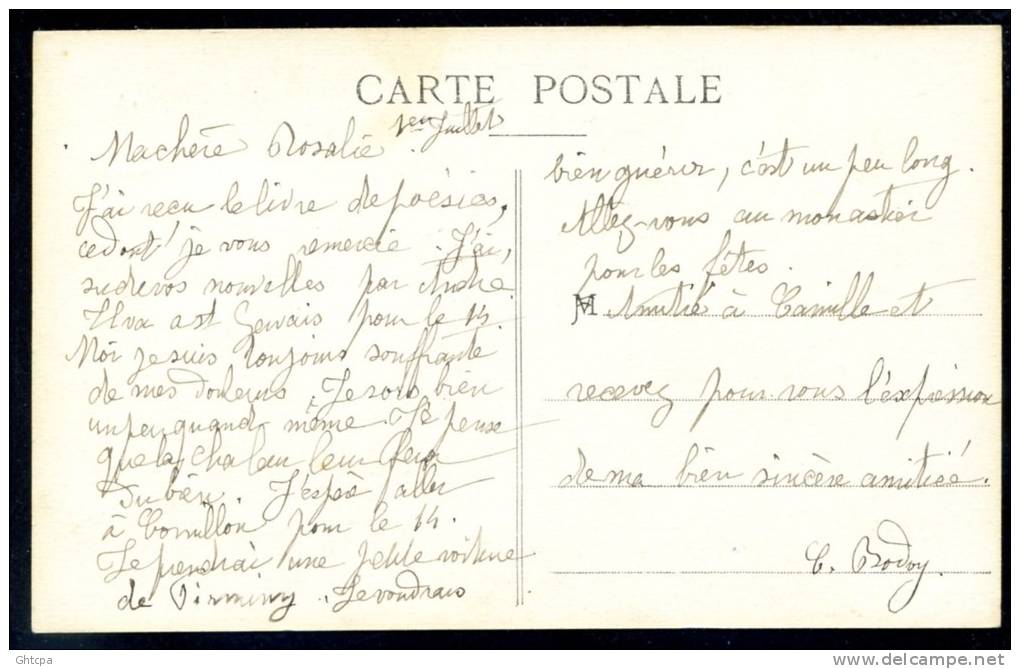 CARTE POSTALE
1er Juillet
Machère Rosalie
J'ai reçu le livre de poésies,
cedont je vous remercie. J'ai,
sudevos nouvelles par André
Ilva a St Gervais pour le 14.
Moi jesuis toujours souffrante
de mes douleurs. Jesors bien
unpeuquand même. Je pense
quela chaleur leur fera
Dubien. J'espère aller
à Cornillon pour le 14.
Je prendrai une petite voiture
de Firminy. Jevoudrais
bien guérir, c'est un peu long.
Allez-vous au monastier
pourles fêtes.
Amitié à Camille et
recevez pour vous l'expression
de ma bien sincère amitiée.
C. Bodoy.
Ghtcpa
www.delcampe.net